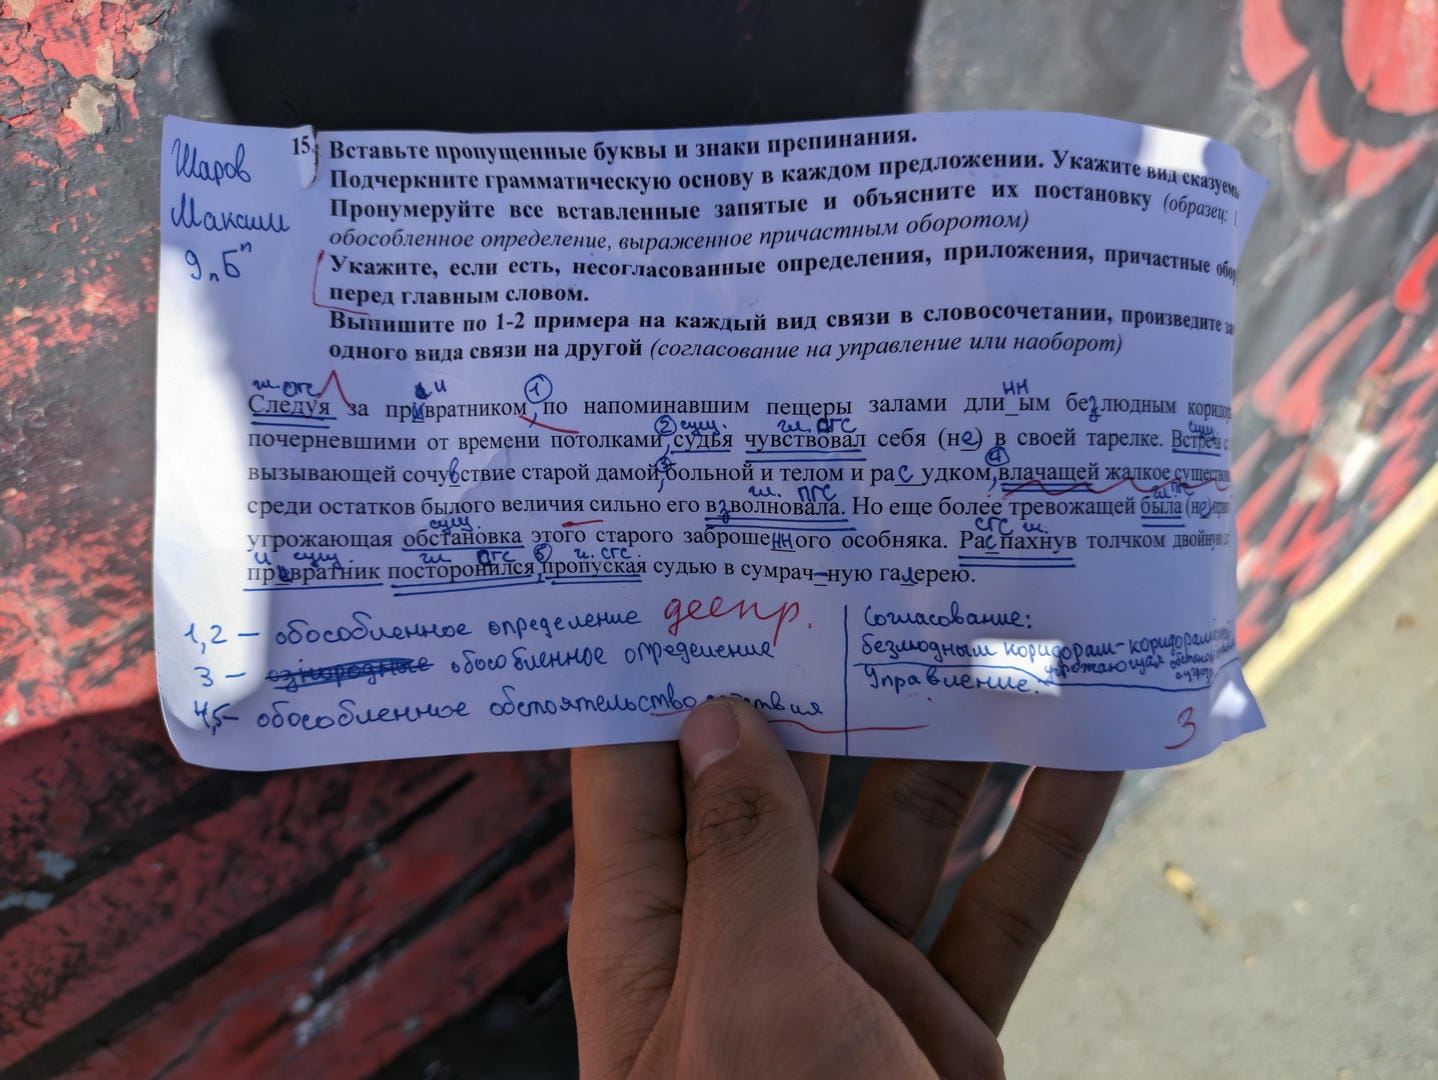 Шаров
Максим
9 „Б"
15. Вставьте пропущенные буквы и знаки препинания.
Подчеркните грамматическую основу в каждом предложении. Укажите вид
Пронумеруйте все вставленные запятые и объясните их постановку (образец:
обособленное определение, выраженное причастным оборотом)
Укажите, если есть, несогласованные определения, приложения, причастные
перед главным словом.
Выпишите по 1-2 примера на каждый вид связи в словосочетании, произведите
одного вида связи на другой (согласование на управление или наоборот)
гл. СГС и 1 нн
Следуя за привратником, по напоминавшим пещеры залами дли_ым безлюдным
2 сущ. гл. ПГС сущ.
почерневшими от времени потолками, судья чувствовал себя (не) в своей тарелке. Встреча с
3 4
вызывающей сочувствие старой дамой, больной и телом и рас_удком, влачащей жалкое
гл. ПГС гл. ПГС
среди остатков былого величия сильно его взволновала. Но еще более тревожащей была (не)
сущ. нн СГС гл.
угрожающая обстановка этого старого заброшенного особняка. Распахнув толчком двойную
и сущ. гл. ПГС 5 гл. СГС.
привратник посторонился, пропуская судью в сумрач_ную галерею.
1,2 – обособленное определение деепр.
3 – обособленное определение
4,5 – обособленное обстоятельство
Согласование:
безлюдным коридорам - коридорам
угрожающая
Управление:
3